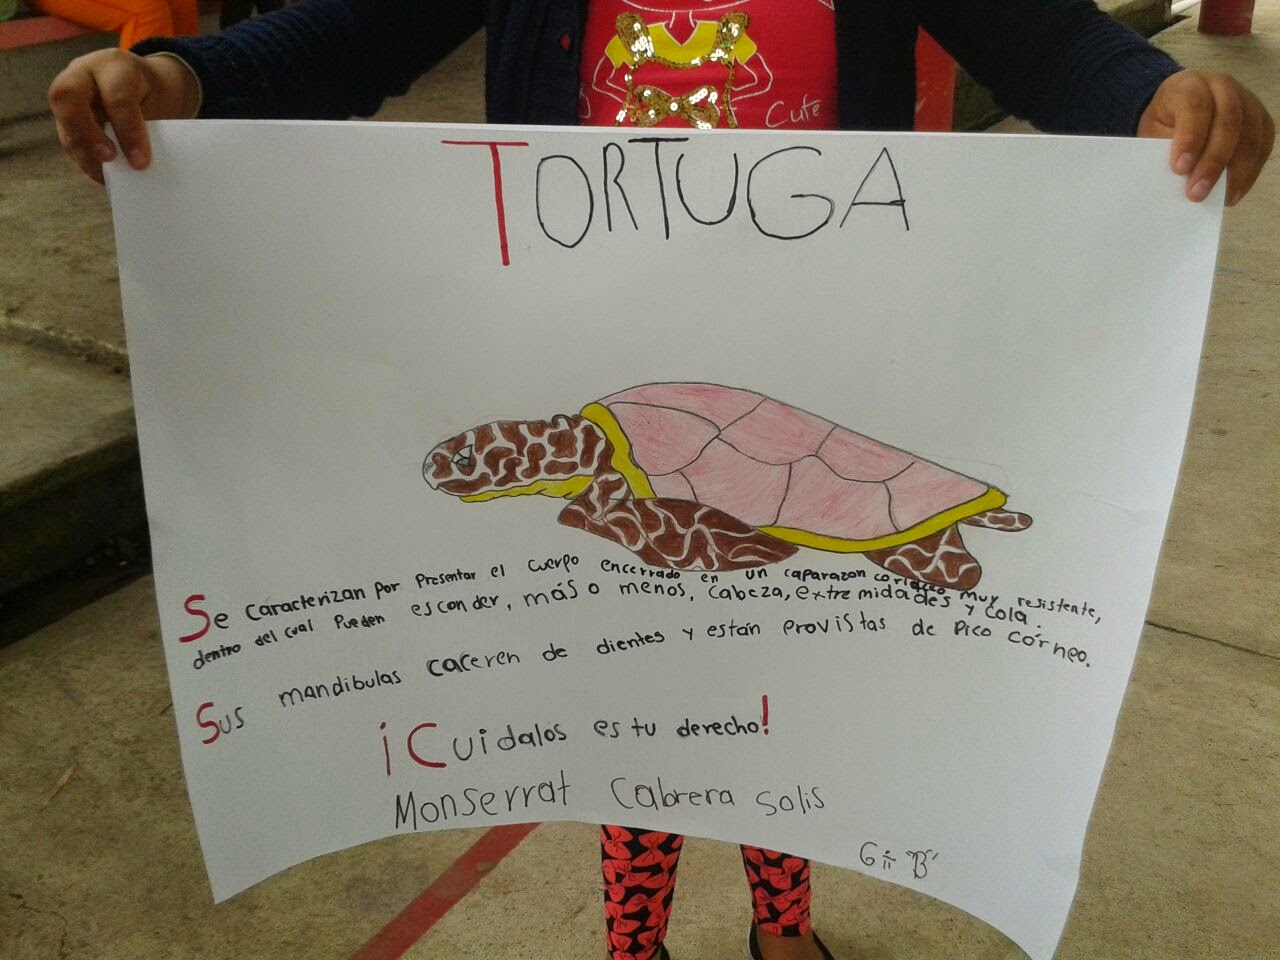 Cute
TORTUGA
Se caracterizan por presentar el cuerpo encerrado en un caparazon coriáceo muy resistente,
dentro del cual pueden esconder, más o menos, cabeza, extremidades y cola.
Sus mandibulas caceren de dientes y están provistas de pico córneo.
¡Cuidalos es tu derecho!
Monserrat Cabrera Solis
6 "B"